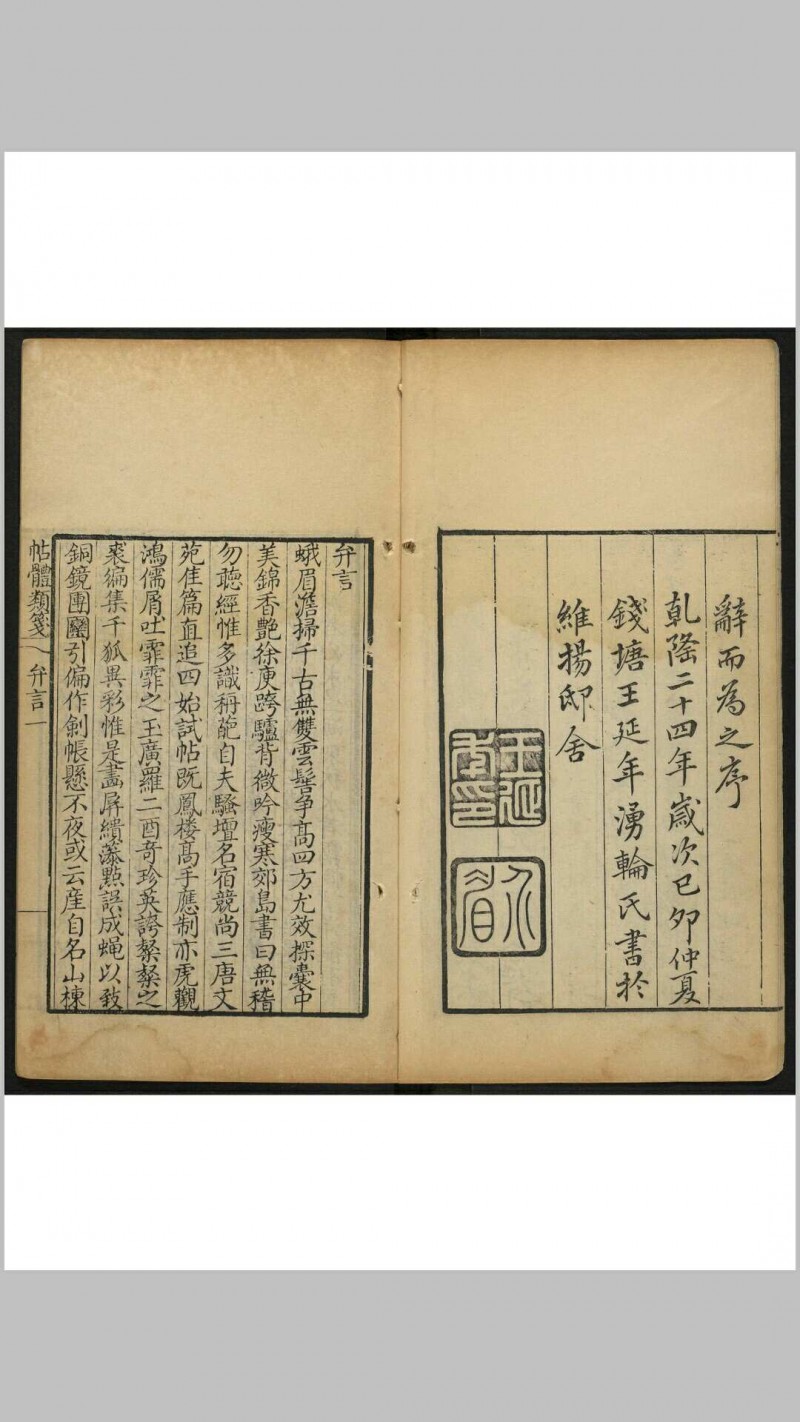 辭而為之序
乹隆二十四年歲次己夘仲夏
錢塘王延年湧輪氏書於
維揚邸舍
王延
年印
介眉
弁言
蛾眉澹掃千古無雙雲髻爭髙四方尤效探囊中
美錦香艷徐庾跨驢背微吟瘦寒郊島書曰無稽
勿聼經惟多識稱葩自夫騷壇名宿競尚三唐文
苑佳篇直追四始試帖既鳳楼髙手應制亦虎觀
鴻儒屑吐霏霏之玉廣羅二酉竒珍英誇粲粲之
裘徧集千狐異彩惟是畫屏繢藻點誤成蝇以致
銅鏡團圞引偏作劍帳懸不夜或云産自名山棟
帖體類箋
弁言
一